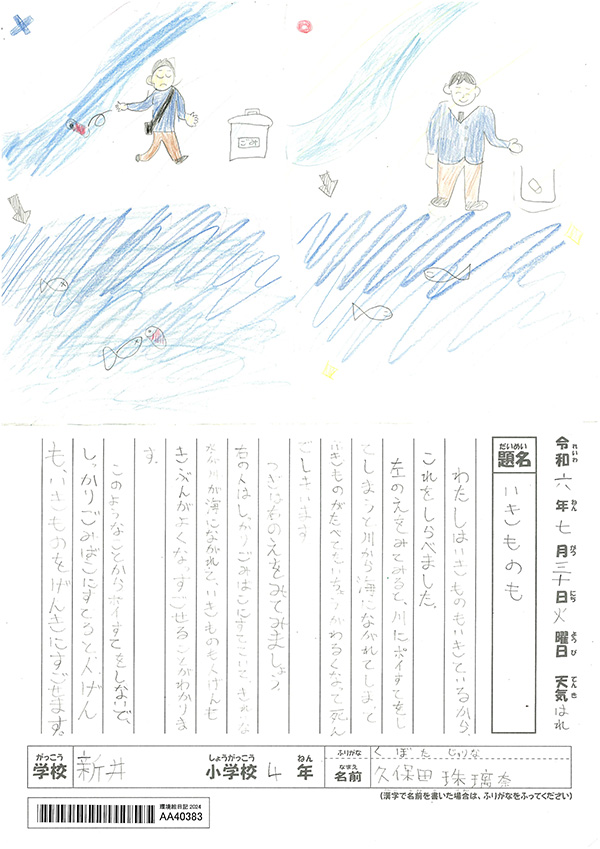 ごみ
令和六年七月三十日火曜日 天気はれ
れいわ ねん がつ にち ようび てんき
だいめい
題名 いきものも
わたしはいきものもいきているから、
これをしらべました。
左のえをみてみると、川にポイすてをし
てしまうと川から海にながれてしまって
いきものがたべてたいちょうがわるくなって死ん
でしまいます
つぎに右のえをみてみましょう。
右の人はしっかりごみばこにすてていて、きれいな
川が海にながれて、いきものも人げんも
きぶんがよくなってすごせることがわかりま
す。
このようなことからポイすてをしないで、
しっかりごみばこにすてると人げん
も、いきものもげんきにすごせます。
がっこう しょうがっこう ねん ふりがな くぼた じゅりな
学校 新井 小学校 4年 なまえ 名前 久保田 珠璃奈
(漢字で名前を書いた場合は、ふりがなをふってください)
環境絵日記 2024
AA40383